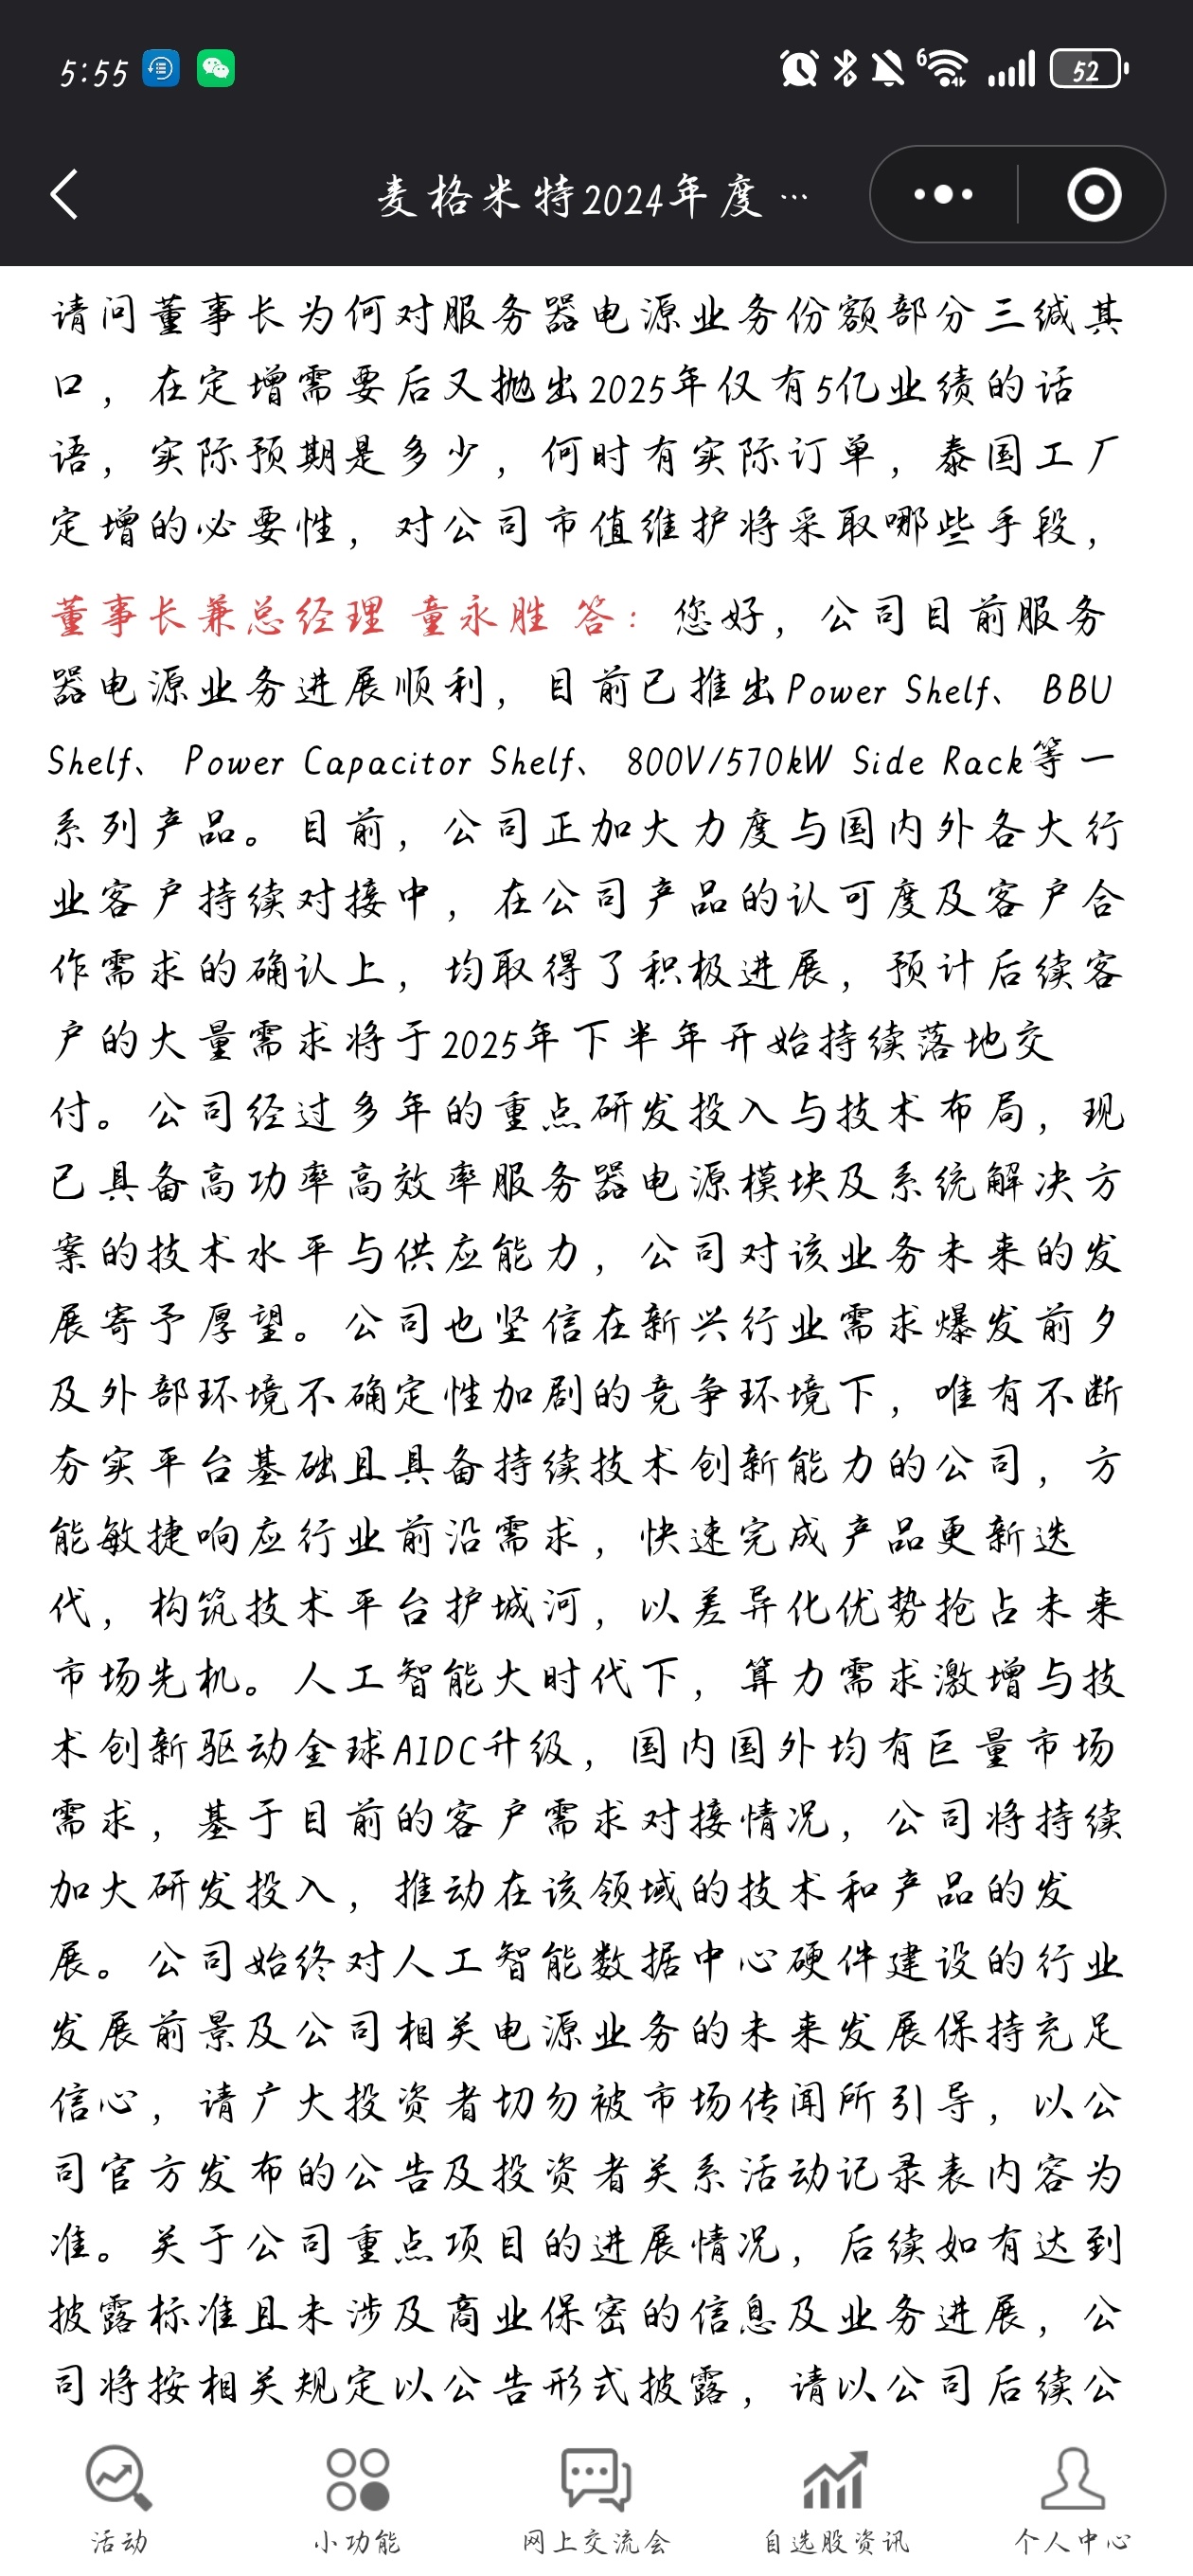 5:55
6
52
麦格米特2024年度…
请问董事长为何对服务器电源业务份额部分三缄其
口，在定增需要后又抛出2025年仅有5亿业绩的话
语，实际预期是多少，何时有实际订单，泰国工厂
定增的必要性，对公司市值维护将采取哪些手段，
董事长兼总经理 童永胜 答：您好，公司目前服务
器电源业务进展顺利，目前已推出Power Shelf、BBU
Shelf、Power Capacitor Shelf、800V/570kW Side Rack等一
系列产品。目前，公司正加大力度与国内外各大行
业客户持续对接中，在公司产品的认可度及客户合
作需求的确认上，均取得了积极进展，预计后续客
户的大量需求将于2025年下半年开始持续落地交
付。公司经过多年的重点研发投入与技术布局，现
已具备高功率高效率服务器电源模块及系统解决方
案的技术水平与供应能力，公司对该业务未来的发
展寄予厚望。公司也坚信在新兴行业需求爆发前夕
及外部环境不确定性加剧的竞争环境下，唯有不断
夯实平台基础且具备持续技术创新能力的公司，方
能敏捷响应行业前沿需求，快速完成产品更新迭
代，构筑技术平台护城河，以差异化优势抢占未来
市场先机。人工智能大时代下，算力需求激增与技
术创新驱动全球AIDC升级，国内国外均有巨量市场
需求，基于目前的客户需求对接情况，公司将持续
加大研发投入，推动在该领域的技术和产品的发
展。公司始终对人工智能数据中心硬件建设的行业
发展前景及公司相关电源业务的未来发展保持充足
信心，请广大投资者切勿被市场传闻所引导，以公
司官方发布的公告及投资者关系活动记录表内容为
准。关于公司重点项目的进展情况，后续如有达到
披露标准且未涉及商业保密的信息及业务进展，公
司将按相关规定以公告形式披露，请以公司后续公
活动
小功能
网上交流会
自选股资讯
个人中心